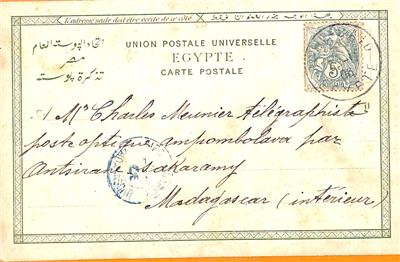 L'adresse seule doit être écrite de ce côté
اتحاد البوستة العام
مصر
تذكرة بوستة
UNION POSTALE UNIVERSELLE
EGYPTE
CARTE POSTALE
5
A Mr Charles Meunier télégraphiste
poste optique ampombolava par
Antsirane sakaramy
Madagascar (intérieur)